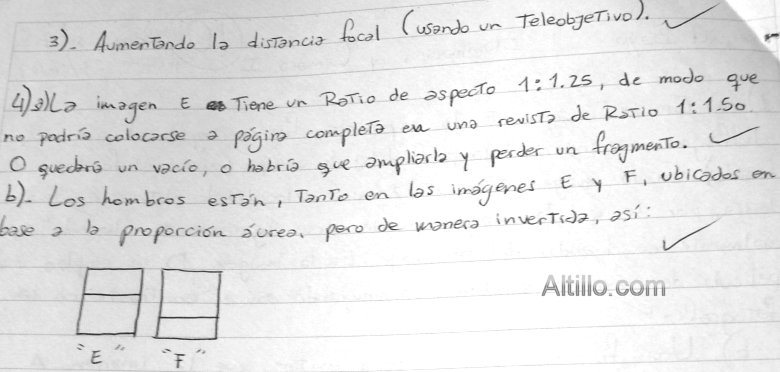 3)_ Aumentando la distancia focal (usando un Teleobjetivo).
4)a)La imagen E Tiene un Ratio de aspecto 1:1.25, de modo que
no podría colocarse a página completa en una revista de Ratio 1:1.50
O quedará un vacío, o habría que ampliarla y perder un fragmento.
b)_ Los hombros están, Tanto en las imágenes E y F, ubicados en
base a la proporción áurea, pero de manera invertida, así:
Altillo.com
"E" "F"